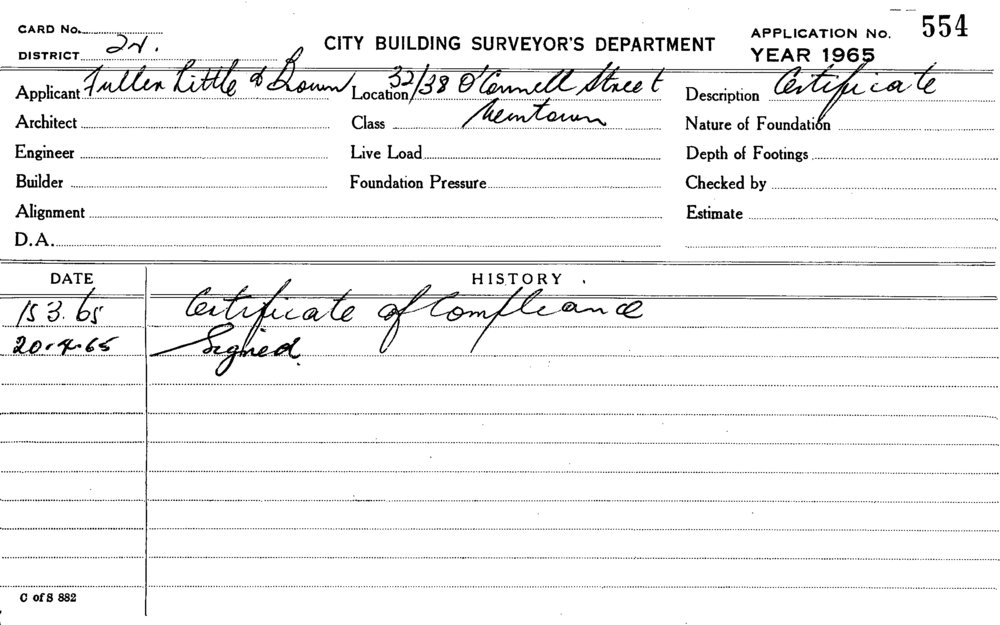 CARD No.
DISTRICT 24.
CITY BUILDING SURVEYOR'S DEPARTMENT
APPLICATION No. 554
YEAR 1965
Applicant Fuller Little & Brown Location 32/38 O'Connell Street Description Certificate
Architect Class Newtown Nature of Foundation
Engineer Live Load Depth of Footings
Builder Foundation Pressure Checked by
Alignment Estimate
D.A.
DATE HISTORY
15 3. 65 Certificate of Compliance
20.4.65 Signed.
C of S 882